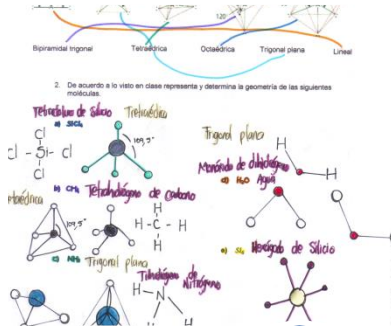 120
Bipiramidal trigonal Tetraédrica Octaédrica Trigonal plana Lineal
2. De acuerdo a lo visto en clase representa y determina la geometría de las siguientes
moléculas.
Tetraédrica
a) SiCl₄
109,5°
Cl
Cl - Si - Cl
Cl
Trigonal plana
H
H
Monóxido de dihidrógeno
d) H₂O Agua
b) CH₄ Tetrahidrógeno de Carbono
109,5°
H
H - C - H
H
c) NH₃ Trigonal plana
Nitrógeno
H - N
H
de Silicio